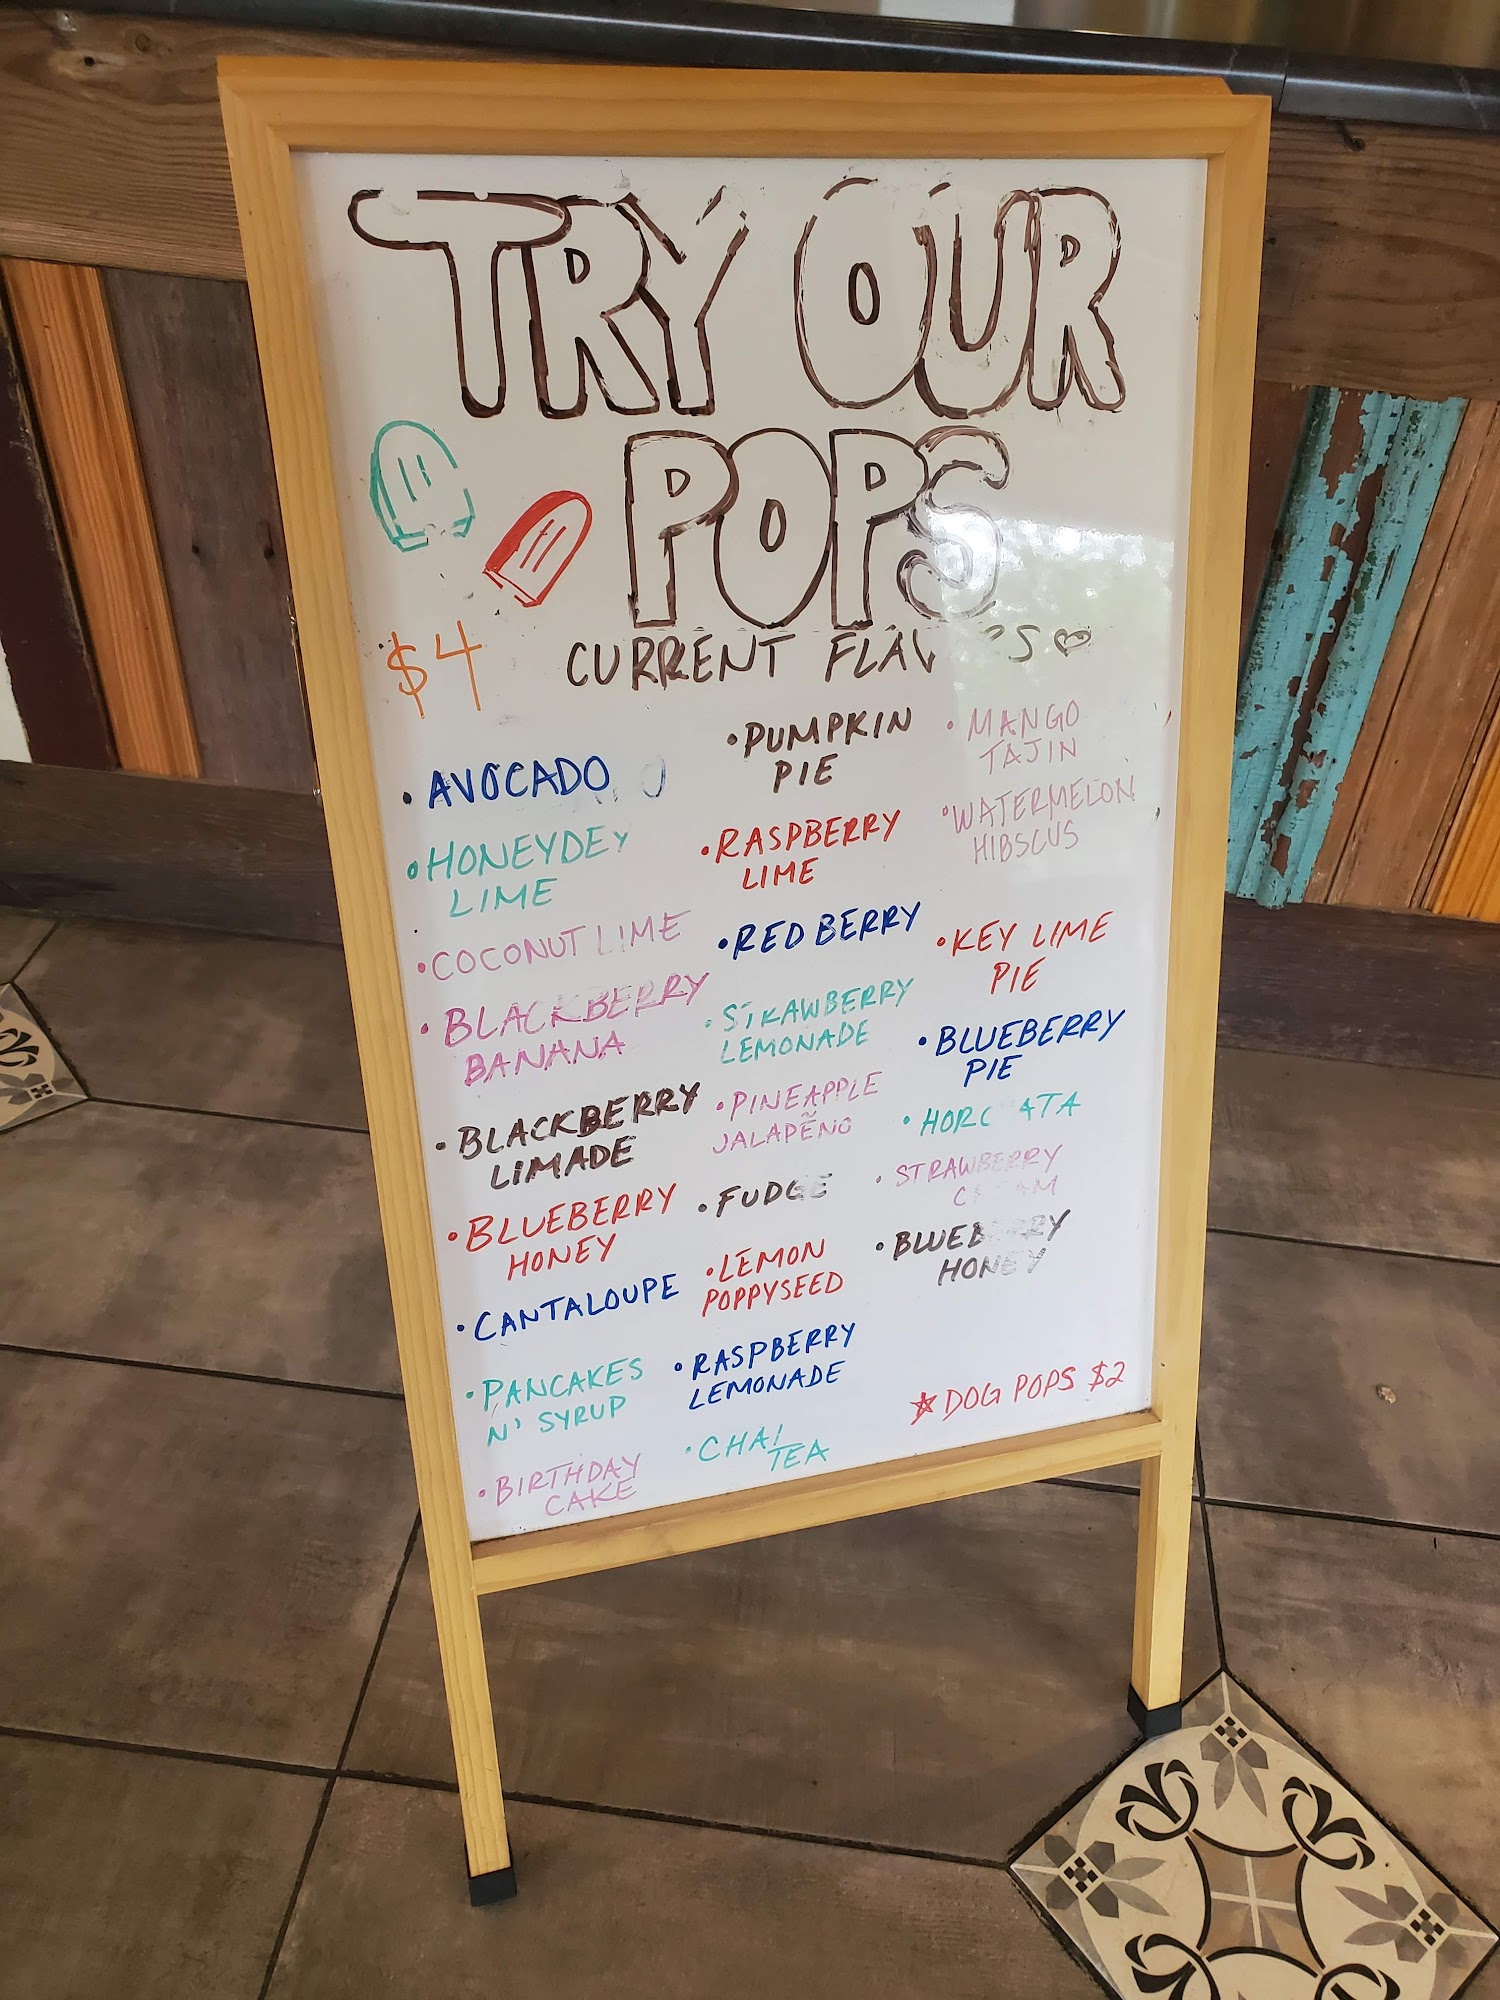 TRY OUR
POPS
$4
CURRENT
• AVOCADO
• HONEYDEY
LIME
• COCONUT LIME
• BLACKBERRY
BANANA
• BLACKBERRY
LIMADE
• BLUEBERRY
HONEY
• CANTALOUPE
• PANCAKES
N' SYRUP
• BIRTHDAY
CAKE
• PUMPKIN
PIE
• RASPBERRY
LIME
• RED BERRY
• STRAWBERRY
LEMONADE
• PINEAPPLE
JALAPẼNO
• FUDGE
• LEMON
POPPYSEED
• RASPBERRY
LEMONADE
• CHAI
TEA
• MANGO
TAJIN
• WATERMELON
HIBSCUS
• KEY LIME
PIE
• BLUEBERRY
PIE
• HORC ATA
• STRAWBERRY
• BLUEBERRY
HONEY
☆ DOG POPS $2